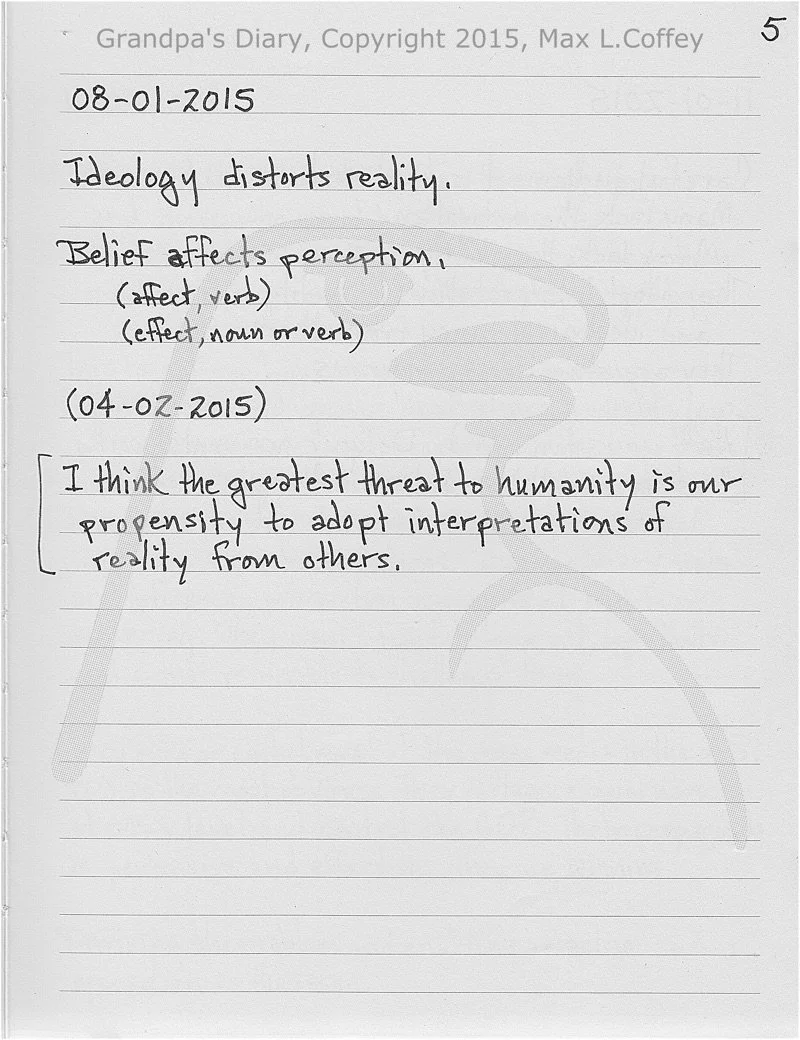 Grandpa's Diary, Copyright 2015, Max L.Coffey
5
08-01-2015
Ideology distorts reality.
Belief affects perception.
(affect, verb)
(effect, noun or verb)
(04-02-2015)
I think the greatest threat to humanity is our
propensity to adopt interpretations of
reality from others.